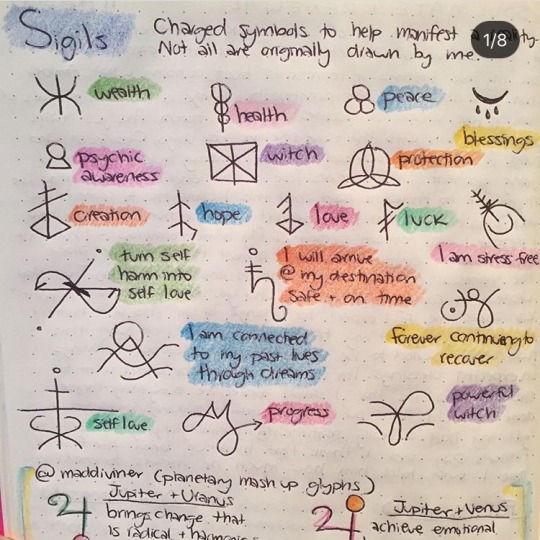 Sigils
Charged symbols to help manifest
Not all are originally drawn by me.
1/8
wealth
health
peace
blessings
psychic
awareness
witch
protection
creation
hope
love
luck
I am stress-free
turn self
harm into
self love
I will arrive
@ my destination
safe + on time
forever continuing to
recover
I am connected
to my past lives
through dreams
self love
progress
powerful
witch
@maddiviner (planetary mash up glyphs)
Jupiter + Uranus
brings change that
is radical + harmonic
Jupiter + Venus
achieve emotional